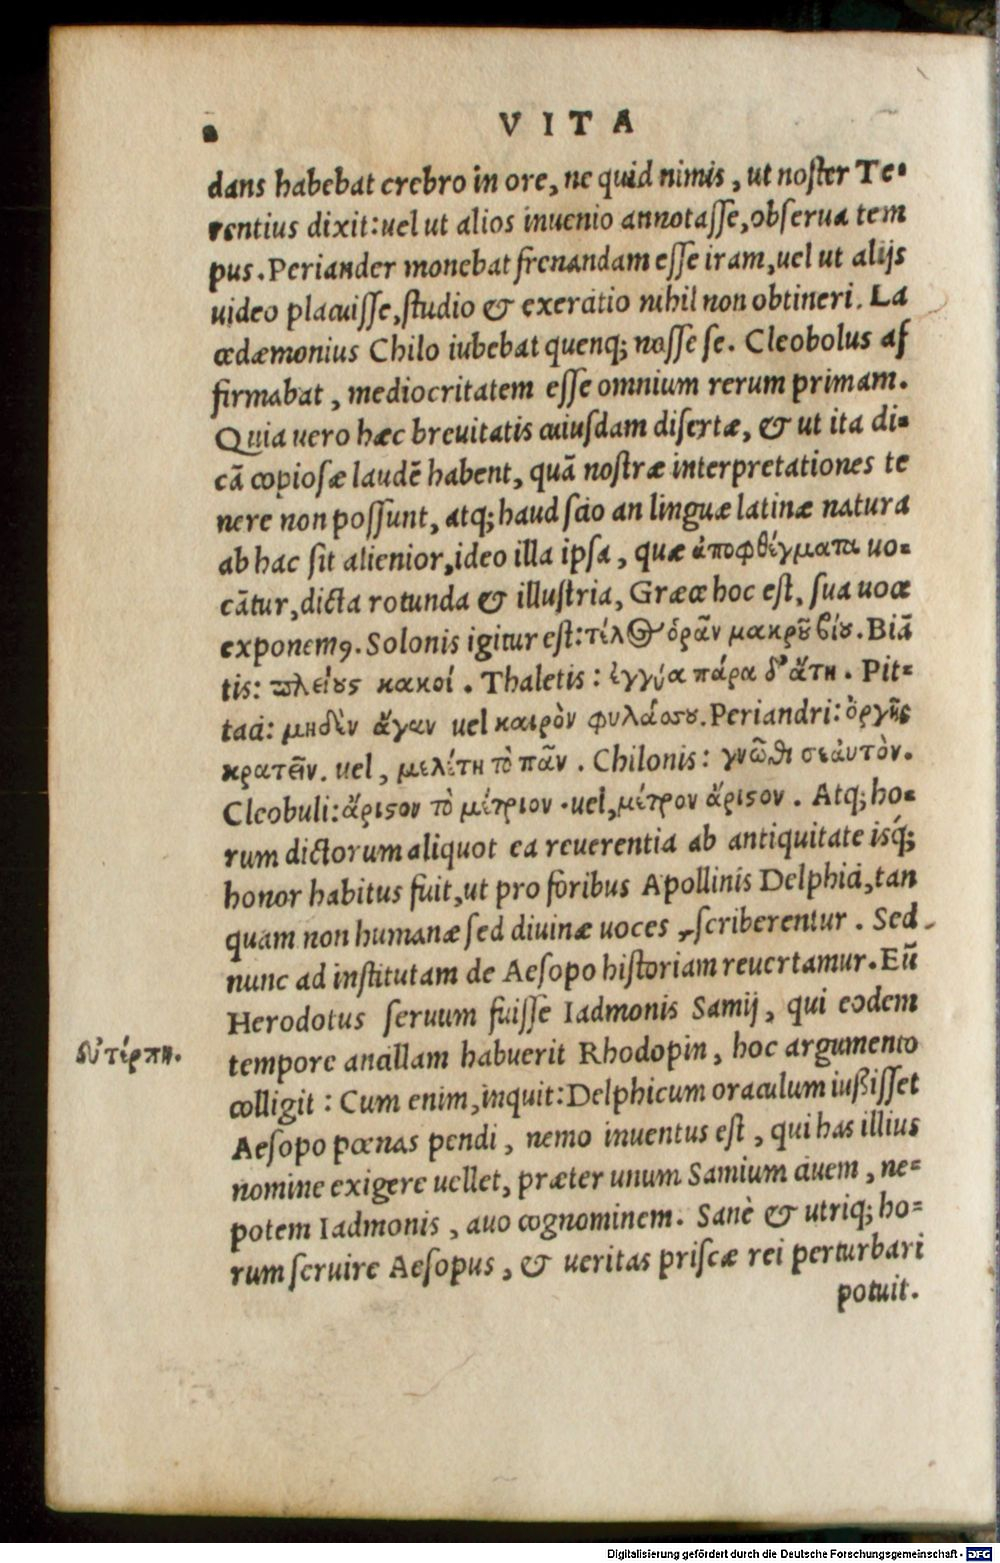 VITA
dans habebat crebro in ore, ne quid nimis, ut noster Te-
rentius dixit: uel ut alios inuenio annotasse, obserua tem
pus. Periander monebat frenandam esse iram, uel ut alijs
uideo placuisse, studio & exercitio nihil non obtineri. La
cedæmonius Chilo iubebat quenq; nosse se. Cleobolus af
firmabat, mediocritatem esse omnium rerum primam.
Quia uero hæc breuitatis cuiusdam disertæ, & ut ita di-
cā copiosæ laudē habent, quā nostræ interpretationes te
nere non possunt, atq; haud scio an linguæ latinæ natura
ab hac sit alienior, ideo illa ipsa, quæ ἀποφθέγματα uo-
cātur, dicta rotunda & illustria, Græce hoc est, sua uoce
exponemꝰ. Solonis igitur est: τέλος ὁρᾶν μακροῦ βίου. Biā
tis: πλείους κακοί. Thaletis: ἐγγύα πάρα δ' ἄτη. Pit-
taci: μηδὲν ἄγαν uel καιρὸν φυλάσσου. Periandri: ὀργῆς
κρατεῖν. uel, μελέτη τὸ πᾶν. Chilonis: γνῶθι σεαυτὸν.
Cleobuli: ἄριστον τὸ μέτριον. uel, μέτρον ἄριστον. Atq; ho-
rum dictorum aliquot ea reuerentia ab antiquitate isq́;
honor habitus fuit, ut pro foribus Apollinis Delphici, tan
quam non humanæ sed diuinæ uoces scriberentur. Sed
nunc ad institutam de Aesopo historiam reuertamur. Eū
Herodotus seruum fuisse Iadmonis Samij, qui eodem
tempore ancillam habuerit Rhodopin, hoc argumento
colligit: Cum enim, inquit: Delphicum oraculum iußisset
Aesopo pœnas pendi, nemo inuentus est, qui has illius
nomine exigere uellet, præter unum Samium ciuem, ne-
potem Iadmonis, auo cognominem. Sanè & utriq; ho-
rum seruire Aesopus, & ueritas priscæ rei perturbari
potuit.
εὐτέρπη.
Digitalisierung gefördert durch die Deutsche Forschungsgemeinschaft - DFG